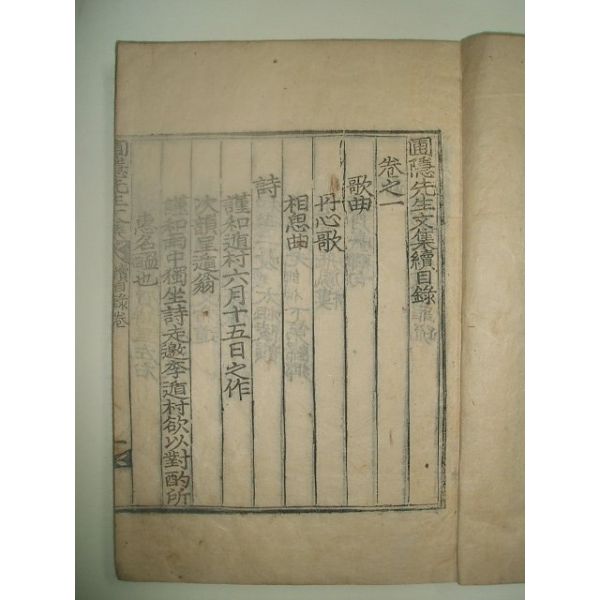 圃隱先生文集續目錄
卷之一
歌曲
丹心歌
相思曲
詩
謹和遁村六月十五日之作
次韻呈遁翁
謹和雨中獨坐詩走邀李遁村欲以對酌所
患名醞也
圃隱先生文集 續目錄卷